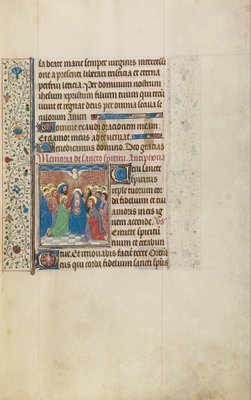 sa beate marie semper virginis intercessi
one a presenti liberari tristicia et eterna
perfrui leticia. Per dominum nostrum
ihesum xpristum filium tuum qui tecum
vivit et regnat deus per omnia secula se
culorum Amen
Domine exaudi orationem meam.
Et clamor meus ad te veniat.
Benedicamus domino. Deo gracias
Memoria de sancto spiritu. Antiphona
Veni sancte
spiritus
reple tuorum cor
da fidelium et tui
amoris in eis ig
nem accende. Vs
Emitte spiritum
tuum et creabun
tur Et renovabis faciem terre Orem
Deus qui corda fidelium sancti spiritus